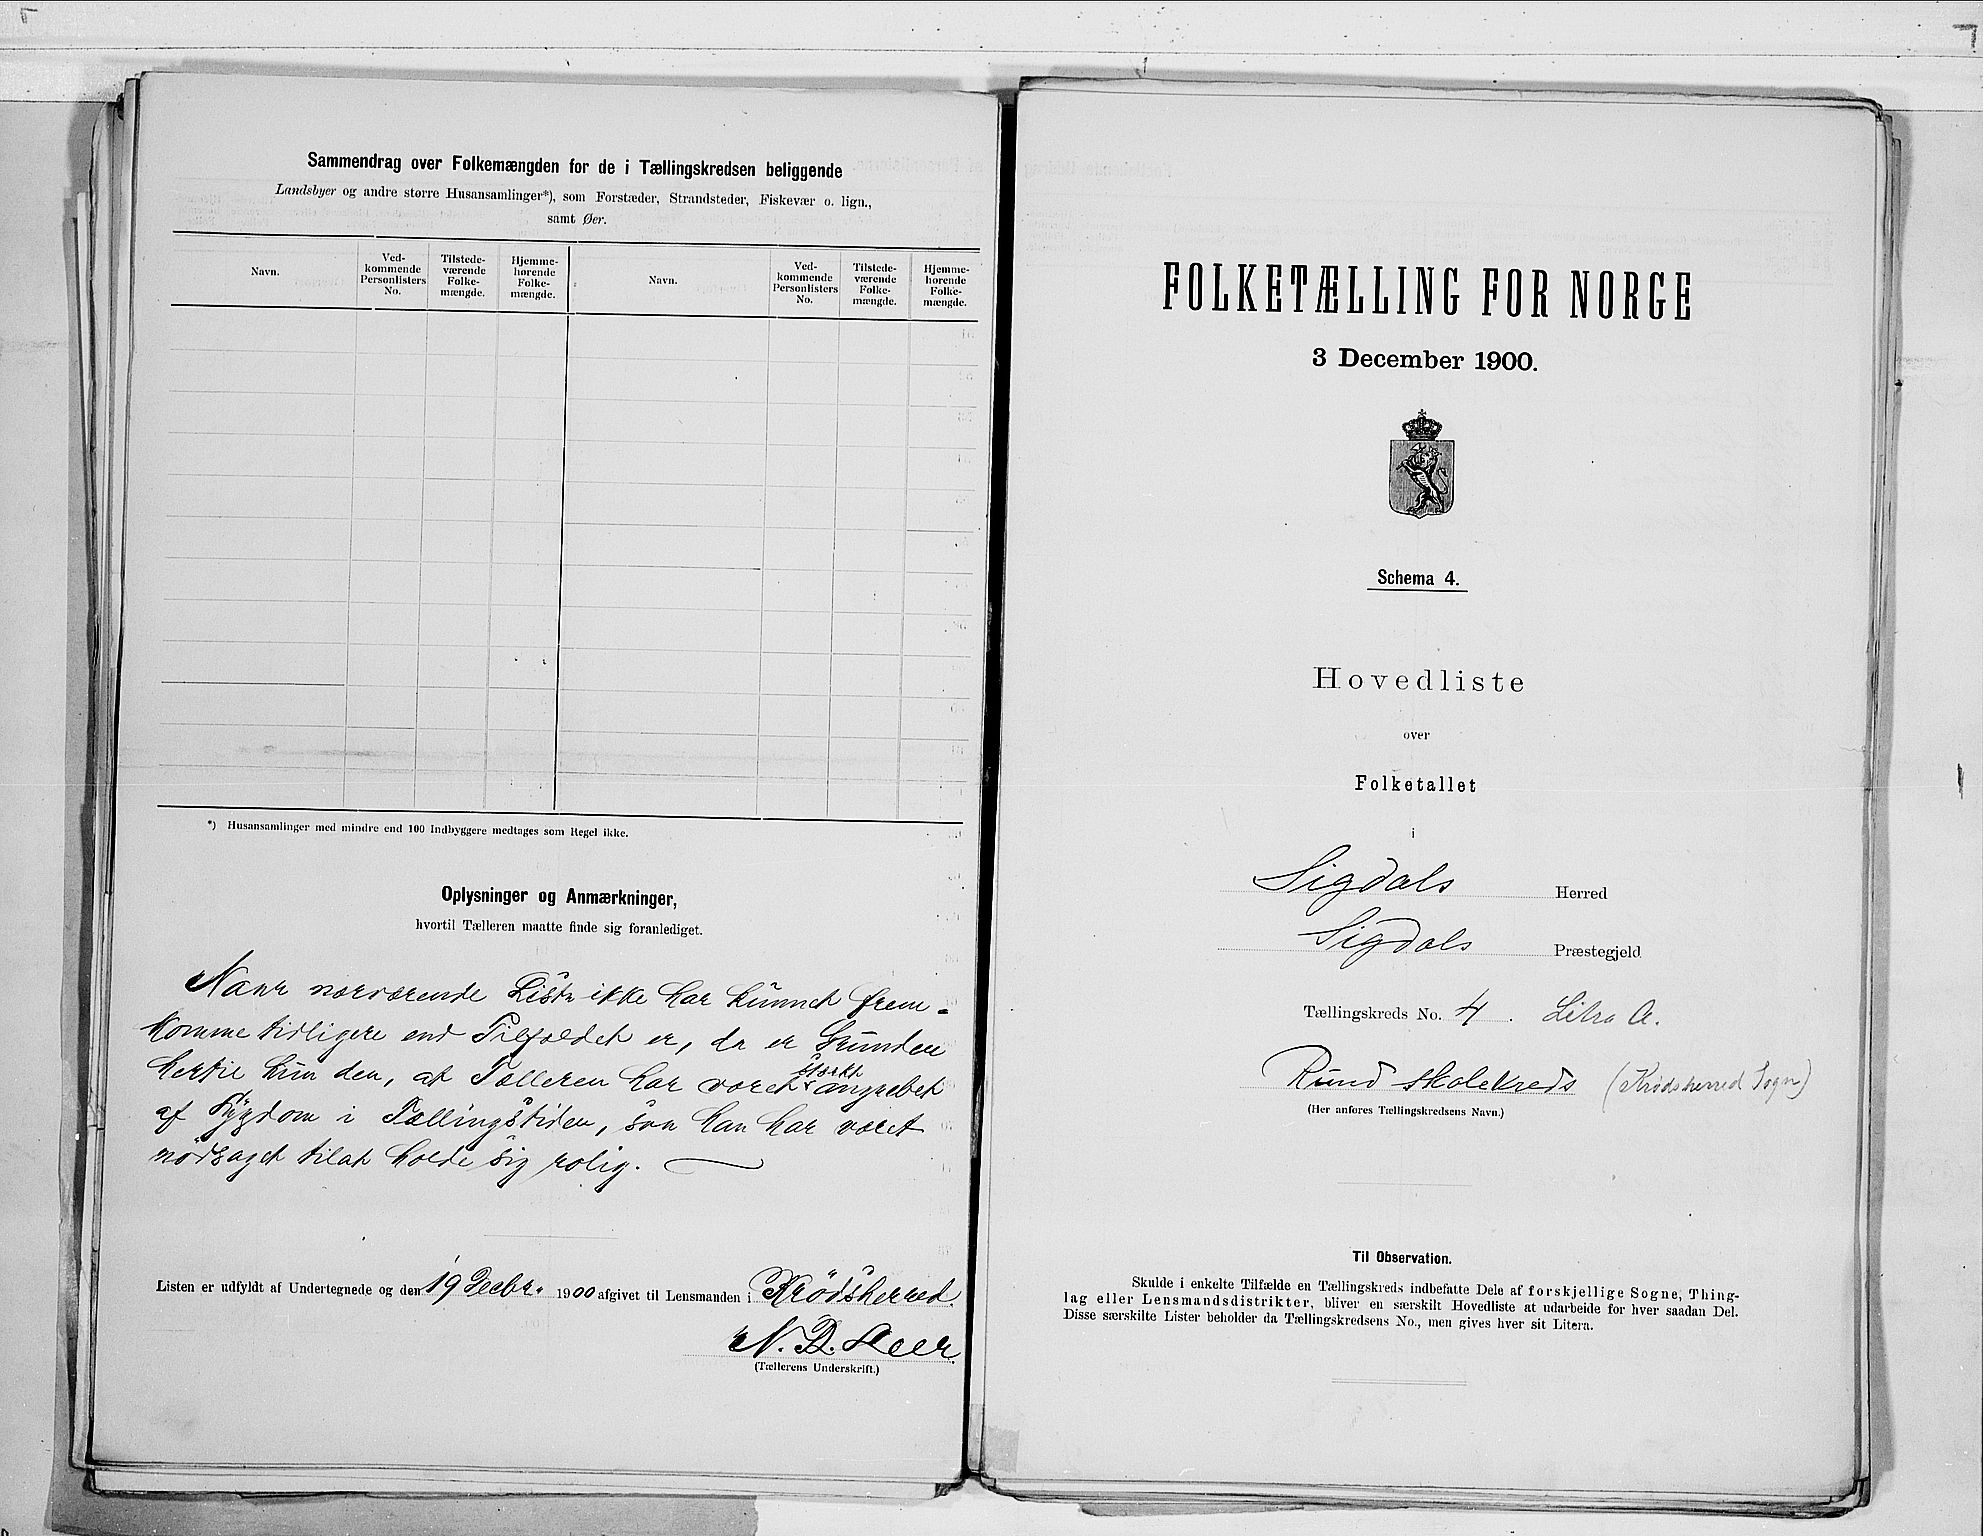 Sammendrag over Folkemængden for de i Tællingskredsen beliggende
Landsbyer og andre større Husansamlinger*), som Forstæder, Strandsteder, Fiskevær o. lign.,
samt Øer.
Navn.
Ved-
kommende
Personlisters
No.
Tilstede-
værende
Folke-
mængde.
Hjemme-
hørende
Folke-
mængde.
Navn.
Ved-
kommende
Personlisters
No.
Tilstede-
værende
Folke-
mængde.
Hjemme-
hørende
Folke-
mængde.
*) Husansamlinger med mindre end 100 Indbyggere medtages som Regel ikke.
Oplysninger og Anmærkninger,
hvortil Tælleren maatte finde sig foranlediget.
Naar nærværende Liste ikke har kunnet frem-
komme tidligere end Tilfældet er, da er Grunden
hertil kun den, at Tælleren har været stærkt angrebet
af Sygdom i Tællingstiden, saa han har været
nødsaget til at holde sig rolig.
Listen er udfyldt af Undertegnede og den 19 Decbr. 1900 afgivet til Lensmanden i Krødsherred.
N. D. Heer
(Tællerens Underskrift.)
FOLKETÆLLING FOR NORGE
3 December 1900.
Schema 4.
Hovedliste
over
Folketallet
i
Sigdals Herred
Sigdals Præstegjeld
Tællingskreds No. 4. Litra A.
Rund Skolekreds (Krødsherred Sogn)
(Her anføres Tællingskredsens Navn.)
Til Observation.
Skulde i enkelte Tilfælde en Tællingskreds indbefatte Dele af forskjellige Sogne, Thing-
lag eller Lensmandsdistrikter, bliver en særskilt Hovedliste at udarbeide for hver saadan Del.
Disse særskilte Lister beholder da Tællingskredsens No., men gives hver sit Litera.